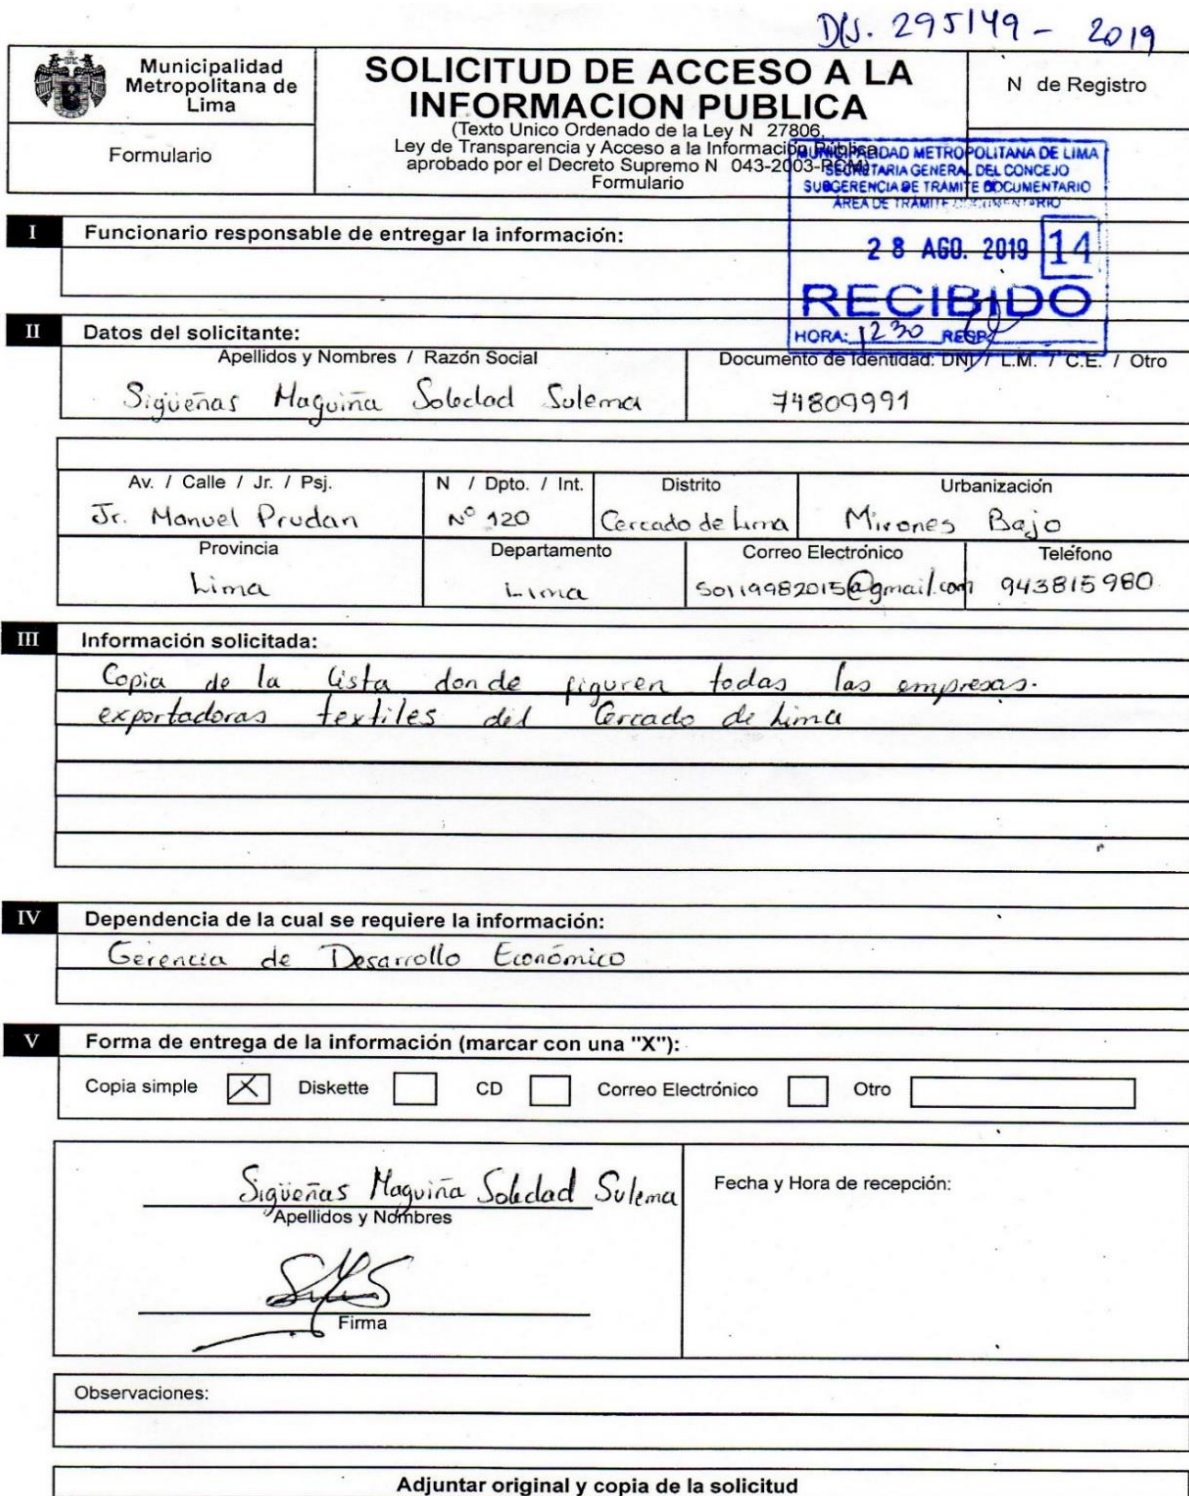 DCS. 295149 - 2019
Municipalidad
Metropolitana de
Lima
Formulario
SOLICITUD DE ACCESO A LA
INFORMACION PUBLICA
(Texto Unico Ordenado de la Ley N 27806,
Ley de Transparencia y Acceso a la Información Pública,
aprobado por el Decreto Supremo N 043-2003-PCM)
Formulario
N de Registro
MUNICIPALIDAD METROPOLITANA DE LIMA
SECRETARIA GENERAL DEL CONCEJO
SUBGERENCIA DE TRAMITE DOCUMENTARIO
AREA DE TRAMITE DOCUMENTARIO
28 AGO. 2019 14
RECIBIDO
HORA: 1230 RESP:
I Funcionario responsable de entregar la información:
II Datos del solicitante:
Apellidos y Nombres / Razón Social
Documento de Identidad: DNI / L.M. / C.E. / Otro
Sigüeñas Maguiña Soledad Sulema
74809991
Av. / Calle / Jr. / Psj. N / Dpto. / Int. Distrito Urbanización
Jr. Manuel Prudan N° 120 Cercado de Lima Mirones Bajo
Provincia Departamento Correo Electrónico Teléfono
Lima Lima 50119982015@gmail.com 943815980
III Información solicitada:
Copia de la lista donde figuren todas las empresas.
exportadoras textiles del Cercado de Lima
IV Dependencia de la cual se requiere la información:
Gerencia de Desarrollo Económico
V Forma de entrega de la información (marcar con una "X"):
Copia simple X Diskette CD Correo Electrónico Otro
Sigüeñas Maguiña Soledad Sulema
Apellidos y Nombres
Firma
Fecha y Hora de recepción:
Observaciones:
Adjuntar original y copia de la solicitud